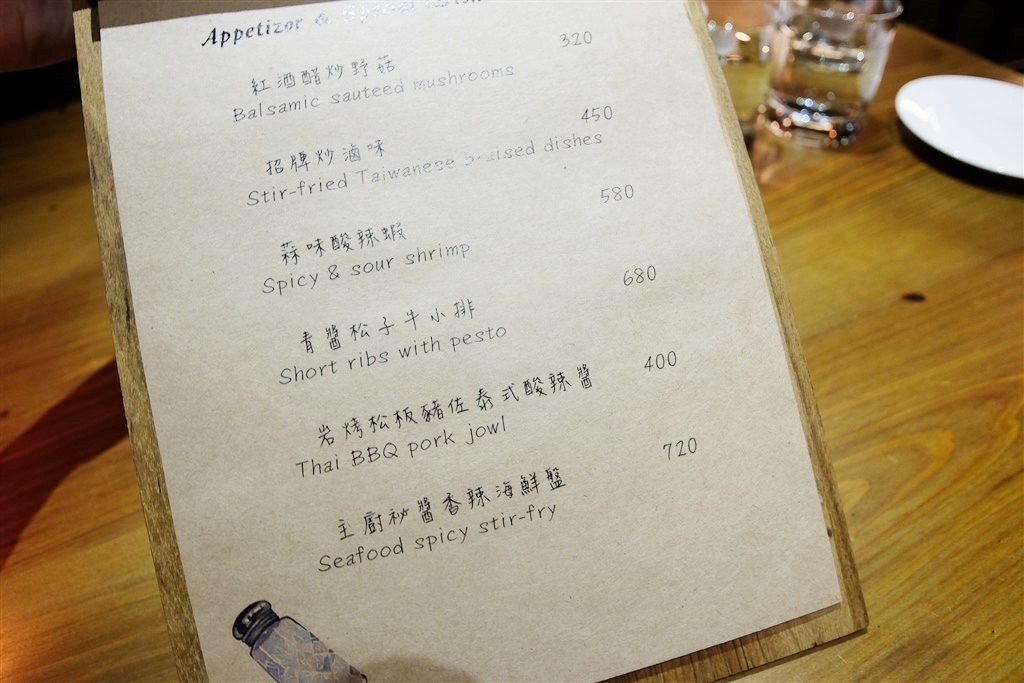 Appetizer & Special
320
紅酒醋炒野菇
Balsamic sauteed mushrooms
450
招牌炒滷味
Stir-fried Taiwanese braised dishes
580
蒜味酸辣蝦
Spicy & sour shrimp
680
青醬松子牛小排
Short ribs with pesto
400
岩烤松板豬佐泰式酸辣醬
Thai BBQ pork jowl
720
主廚祕醬香辣海鮮盤
Seafood spicy stir-fry